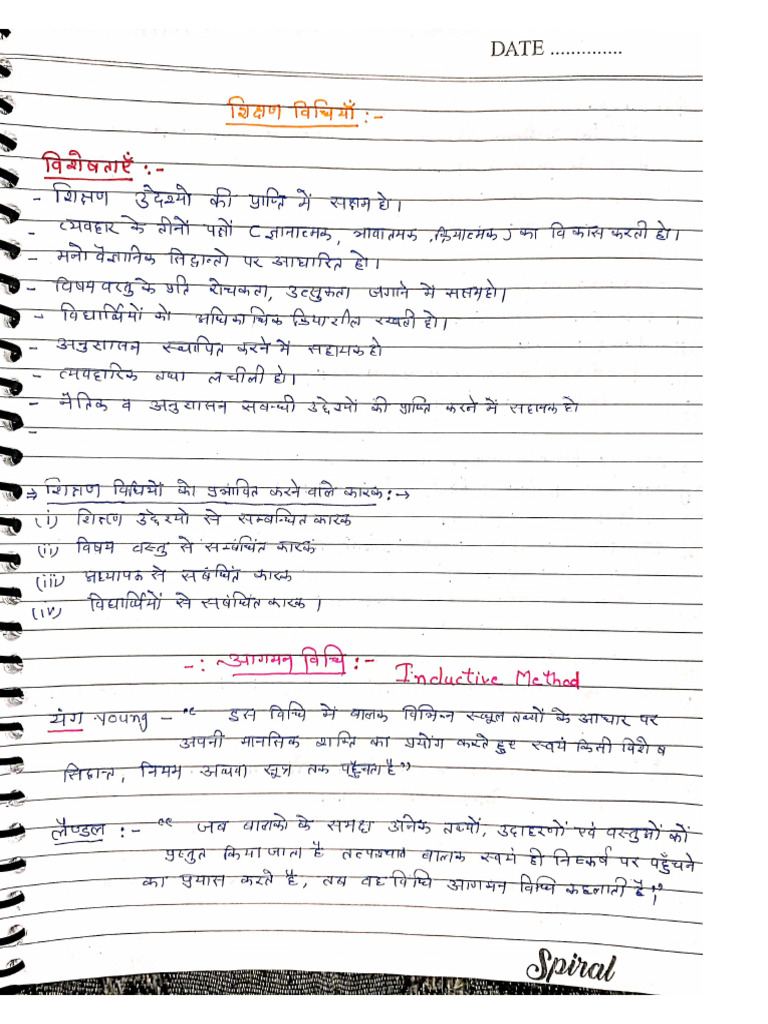 DATE ..............
शिक्षण विधियाँ :-
विशेषताएँ :-
- शिक्षण उद्देश्यो की प्राप्ति में सक्षम हो।
- व्यवहार के तीनों पक्षों (ज्ञानात्मक, भावात्मक, क्रियात्मक) का विकास करती हो।
- मनो वैज्ञानिक सिद्धान्तो पर आधारित हो।
- विषय वस्तु के प्रति रोचकता, उत्सुकता जगाने में सक्षम हो।
- विद्यार्थियों को अधिकाधिक क्रियाशील रखती हो।
- अनुशासन स्थापित करने में सहायक हो
- व्यवहारिक तथा लचीली हो।
- नैतिक व अनुशासन सबन्धी उद्देश्यों की प्राप्ति करने में सहायक हो
-
⇒ शिक्षण विधियों को प्रभावित करने वाले कारक :→
(i) शिक्षण उद्देश्यो से सम्बन्धित कारक
(ii) विषय वस्तु से सम्बंधित कारक
(iii) अध्यापक से सबंधित कारक
(iv) विद्यार्थियों से सबंधित कारक।
-: आगमन विधि :- Inductive Method
यंग Young - "इस विधि में बालक विभिन्न स्थूल तथ्यों के आधार पर
अपनी मानसिक शक्ति का प्रयोग करते हुए स्वयं किसी विशेष
सिद्धान्त, नियम अथवा सूत्र तक पहुँचता है"
लैण्डल :- "जब बालको के समक्ष अनेक तथ्यों, उदाहरणों एवं वस्तुओं को
प्रस्तुत किया जाता है तत्पश्चात बालक स्वयं ही निष्कर्ष पर पहुँचने
का प्रयास करते है, तब वह विधि आगमन विधि कहलाती है"।
Spiral